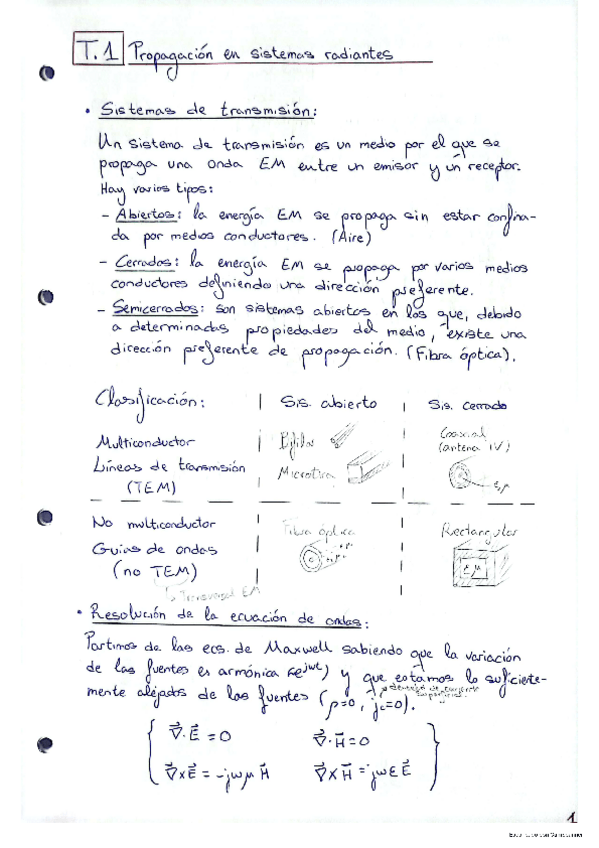 T.1 Propagación en sistemas radiantes
• Sistemas de transmisión:
Un sistema de transmisión es un medio por el que se
propaga una onda EM entre un emisor y un receptor.
Hay varios tipos:
- Abiertos: la energía EM se propaga sin estar confina-
da por medios conductores. (Aire)
- Cerrados: la energía EM se propaga por varios medios
conductores definiendo una dirección preferente.
- Semicerrados: son sistemas abiertos en los que, debido
a determinadas propiedades del medio, existe una
dirección preferente de propagación. (Fibra óptica).
Clasificación: Sis. abierto Sis. cerrado
Multiconductor
Líneas de transmisión
(TEM)
Bifilar
Microtira
Coaxial
(antena TV)
ε,μ
No multiconductor
Guías de ondas
(no TEM)
↳ Transversal EM
Fibra óptica
Rectangular
ε,μ
• Resolución de la ecuación de ondas:
Partimos de las ecs. de Maxwell sabiendo que la variación
de las fuentes es armónica (e^jwt) y que estamos lo suficiete-
mente alejados de las fuentes (ρ=0, jc=0).
densidad de corriente
superficial
∇·E = 0 ∇·H = 0
∇×E = -jωμ H ∇×H = jωε E
1